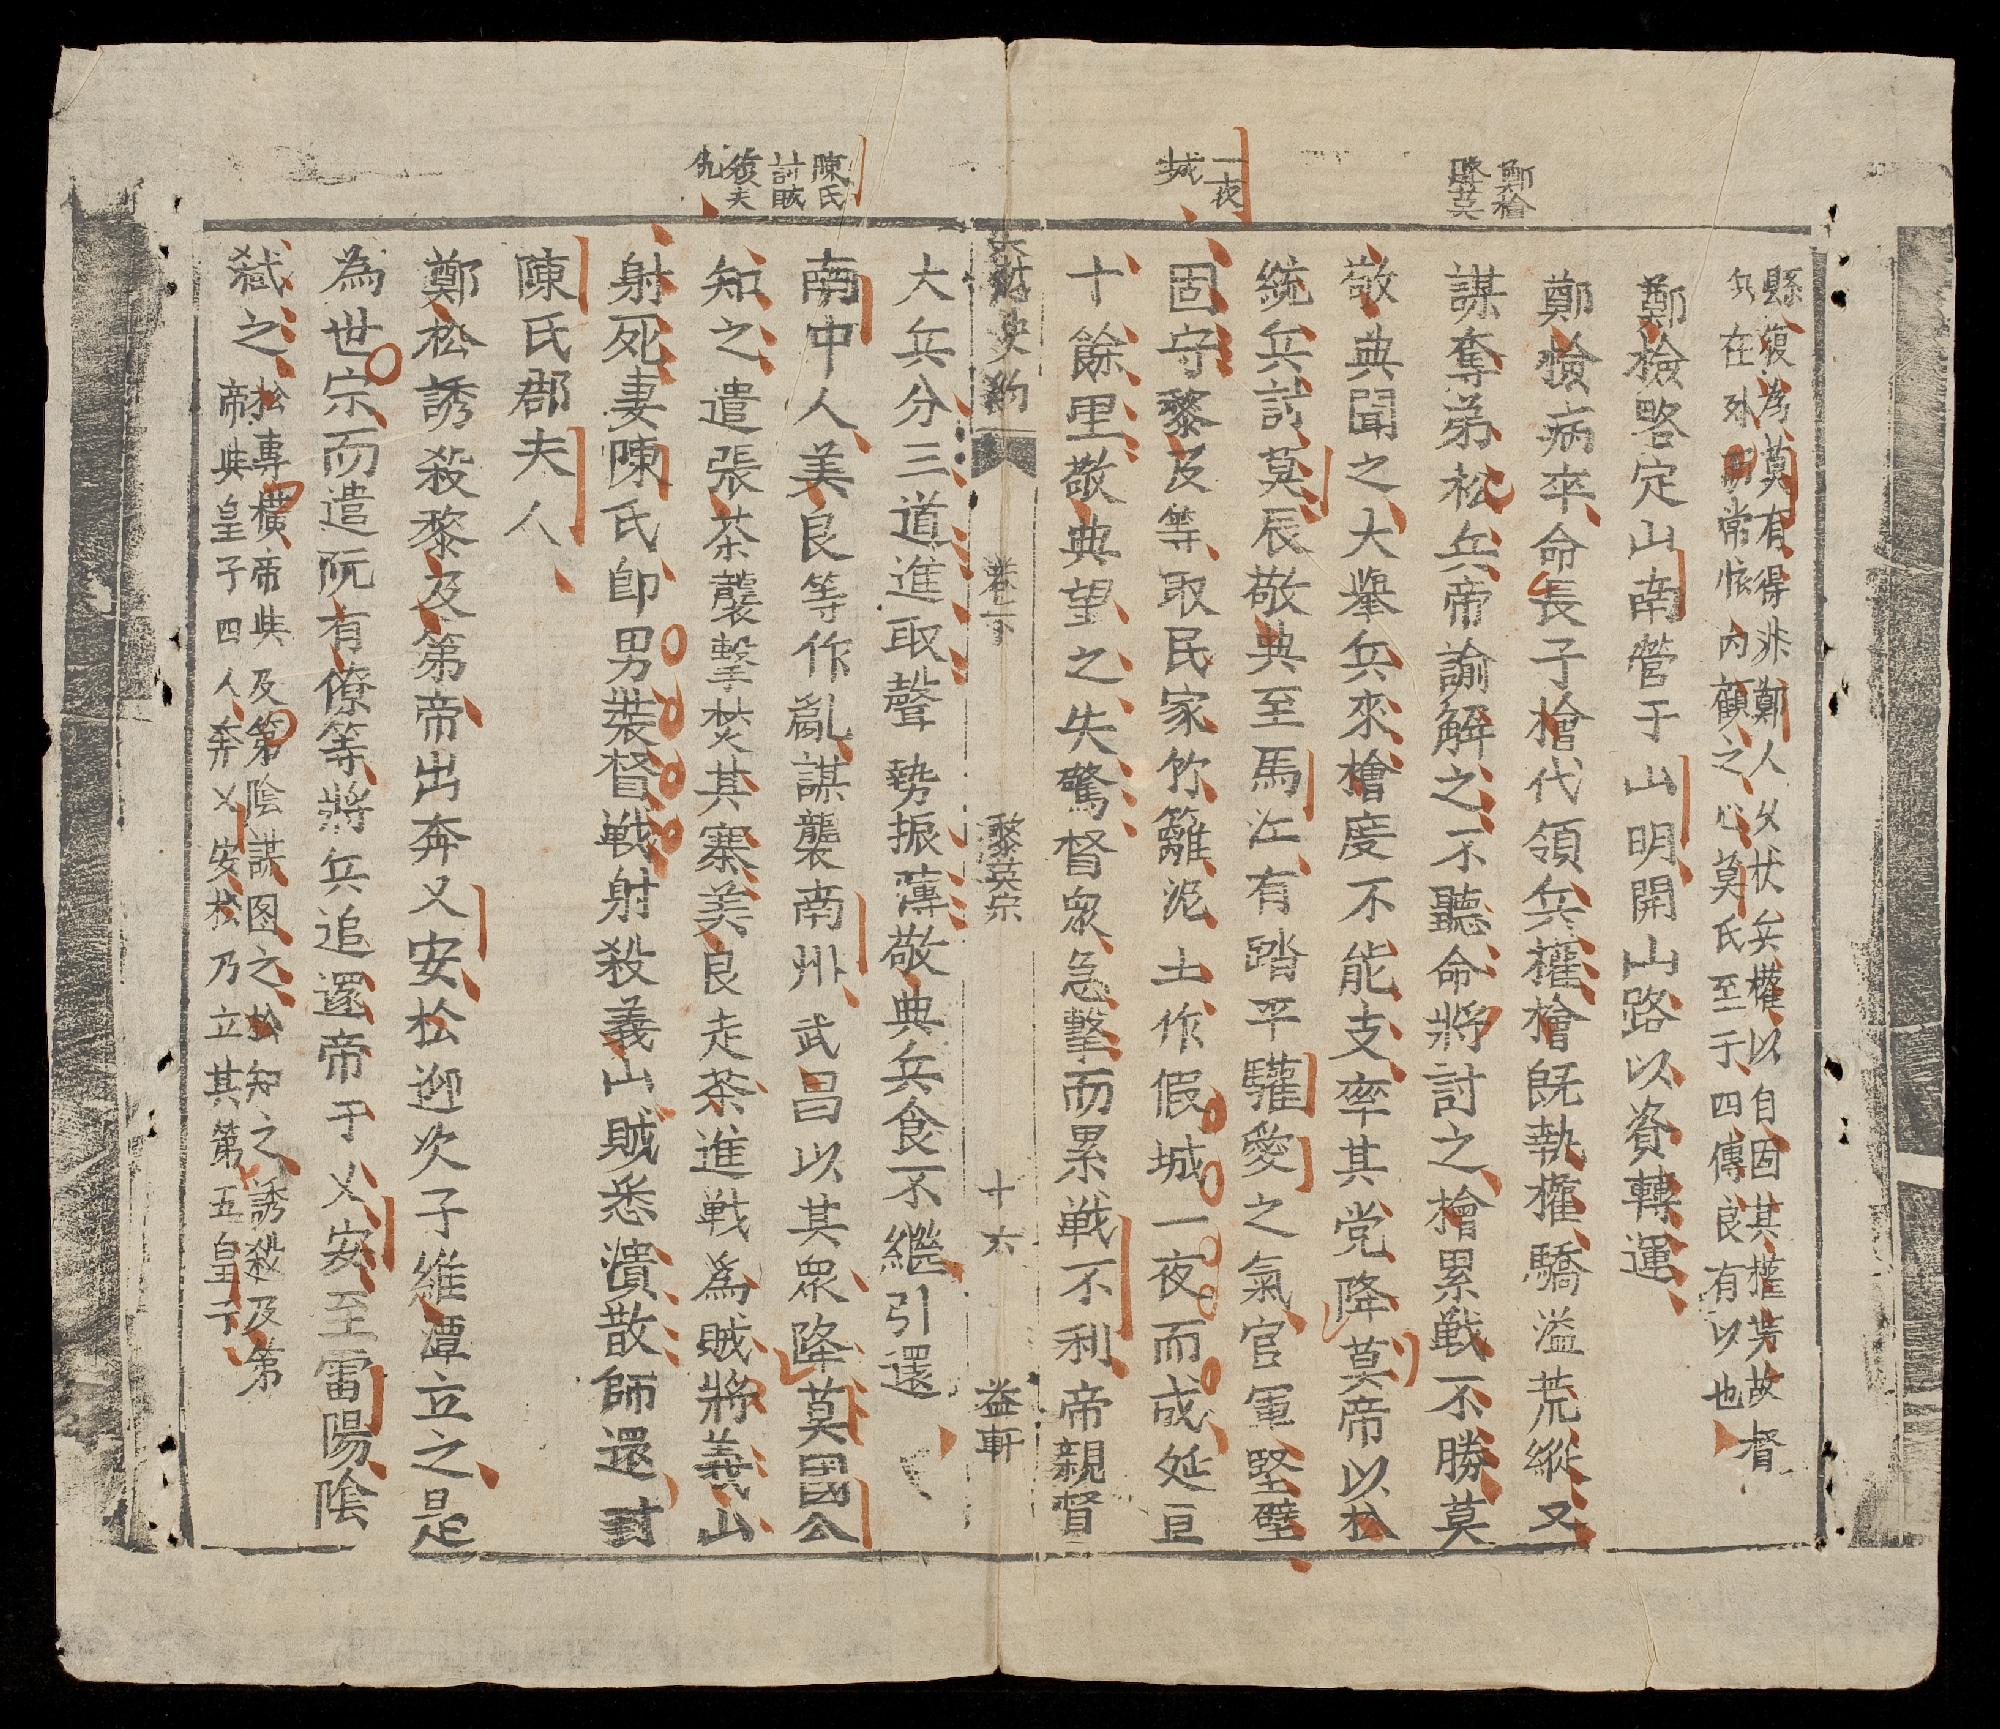 鄭檜
降莫
一夜
城
陳氏
討賊
復夫
仇
縣復為莫有得非鄭人攵状兵權以自固其權势故督
兵在外而常怅內顧之心莫氏至于四傳良有以也
鄭檢略定山南營于山明開山路以資轉運
鄭檢病卒命長子檜代領兵權檜既執權驕溢荒縱又
謀奪弟松兵帝諭解之不聽命將討之檜累戦不勝莫
敬典聞之大舉兵來檜度不能支率其党降莫帝以松
統兵討莫辰敬典至馬江有踏平驩愛之氣官軍堅壁
固守黎及等取民家竹籬泥土作假城一夜而成延亘
十餘里敬典望之失驚督衆急擊而累戦不利帝親督
卷之下
黎英宗
十六
益軒
大兵分三道進取聲勢振薄敬典兵食不繼引還
南中人美良等作亂謀襲南州武昌以其衆降莫國公
知之遣張茶襲擊焚其寨美良走茶進戦為賊將義山
射死妻陳氏卽男裝督戦射殺義山賊悉潰散師還封
陳氏郡夫人
鄭松誘殺黎及第帝出奔乂安松迎次子維潭立之是
為世宗而遣阮有僚等將兵追還帝于乂安至雷陽陰
弑之
松專橫帝與及第陰謀图之松知之誘殺及第
帝與皇子四人奔乂安松乃立其第五皇子